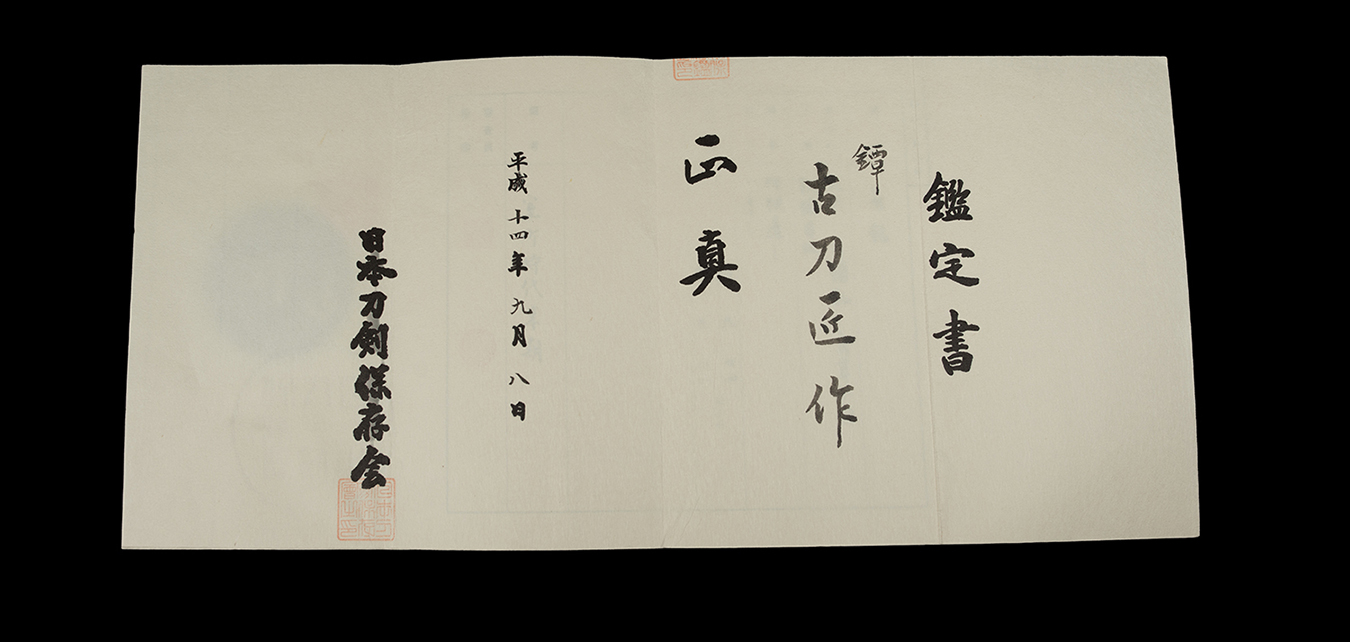 鑑定書
鐔
古刀匠作
正真
平成十四年九月八日
日本刀剣保存会